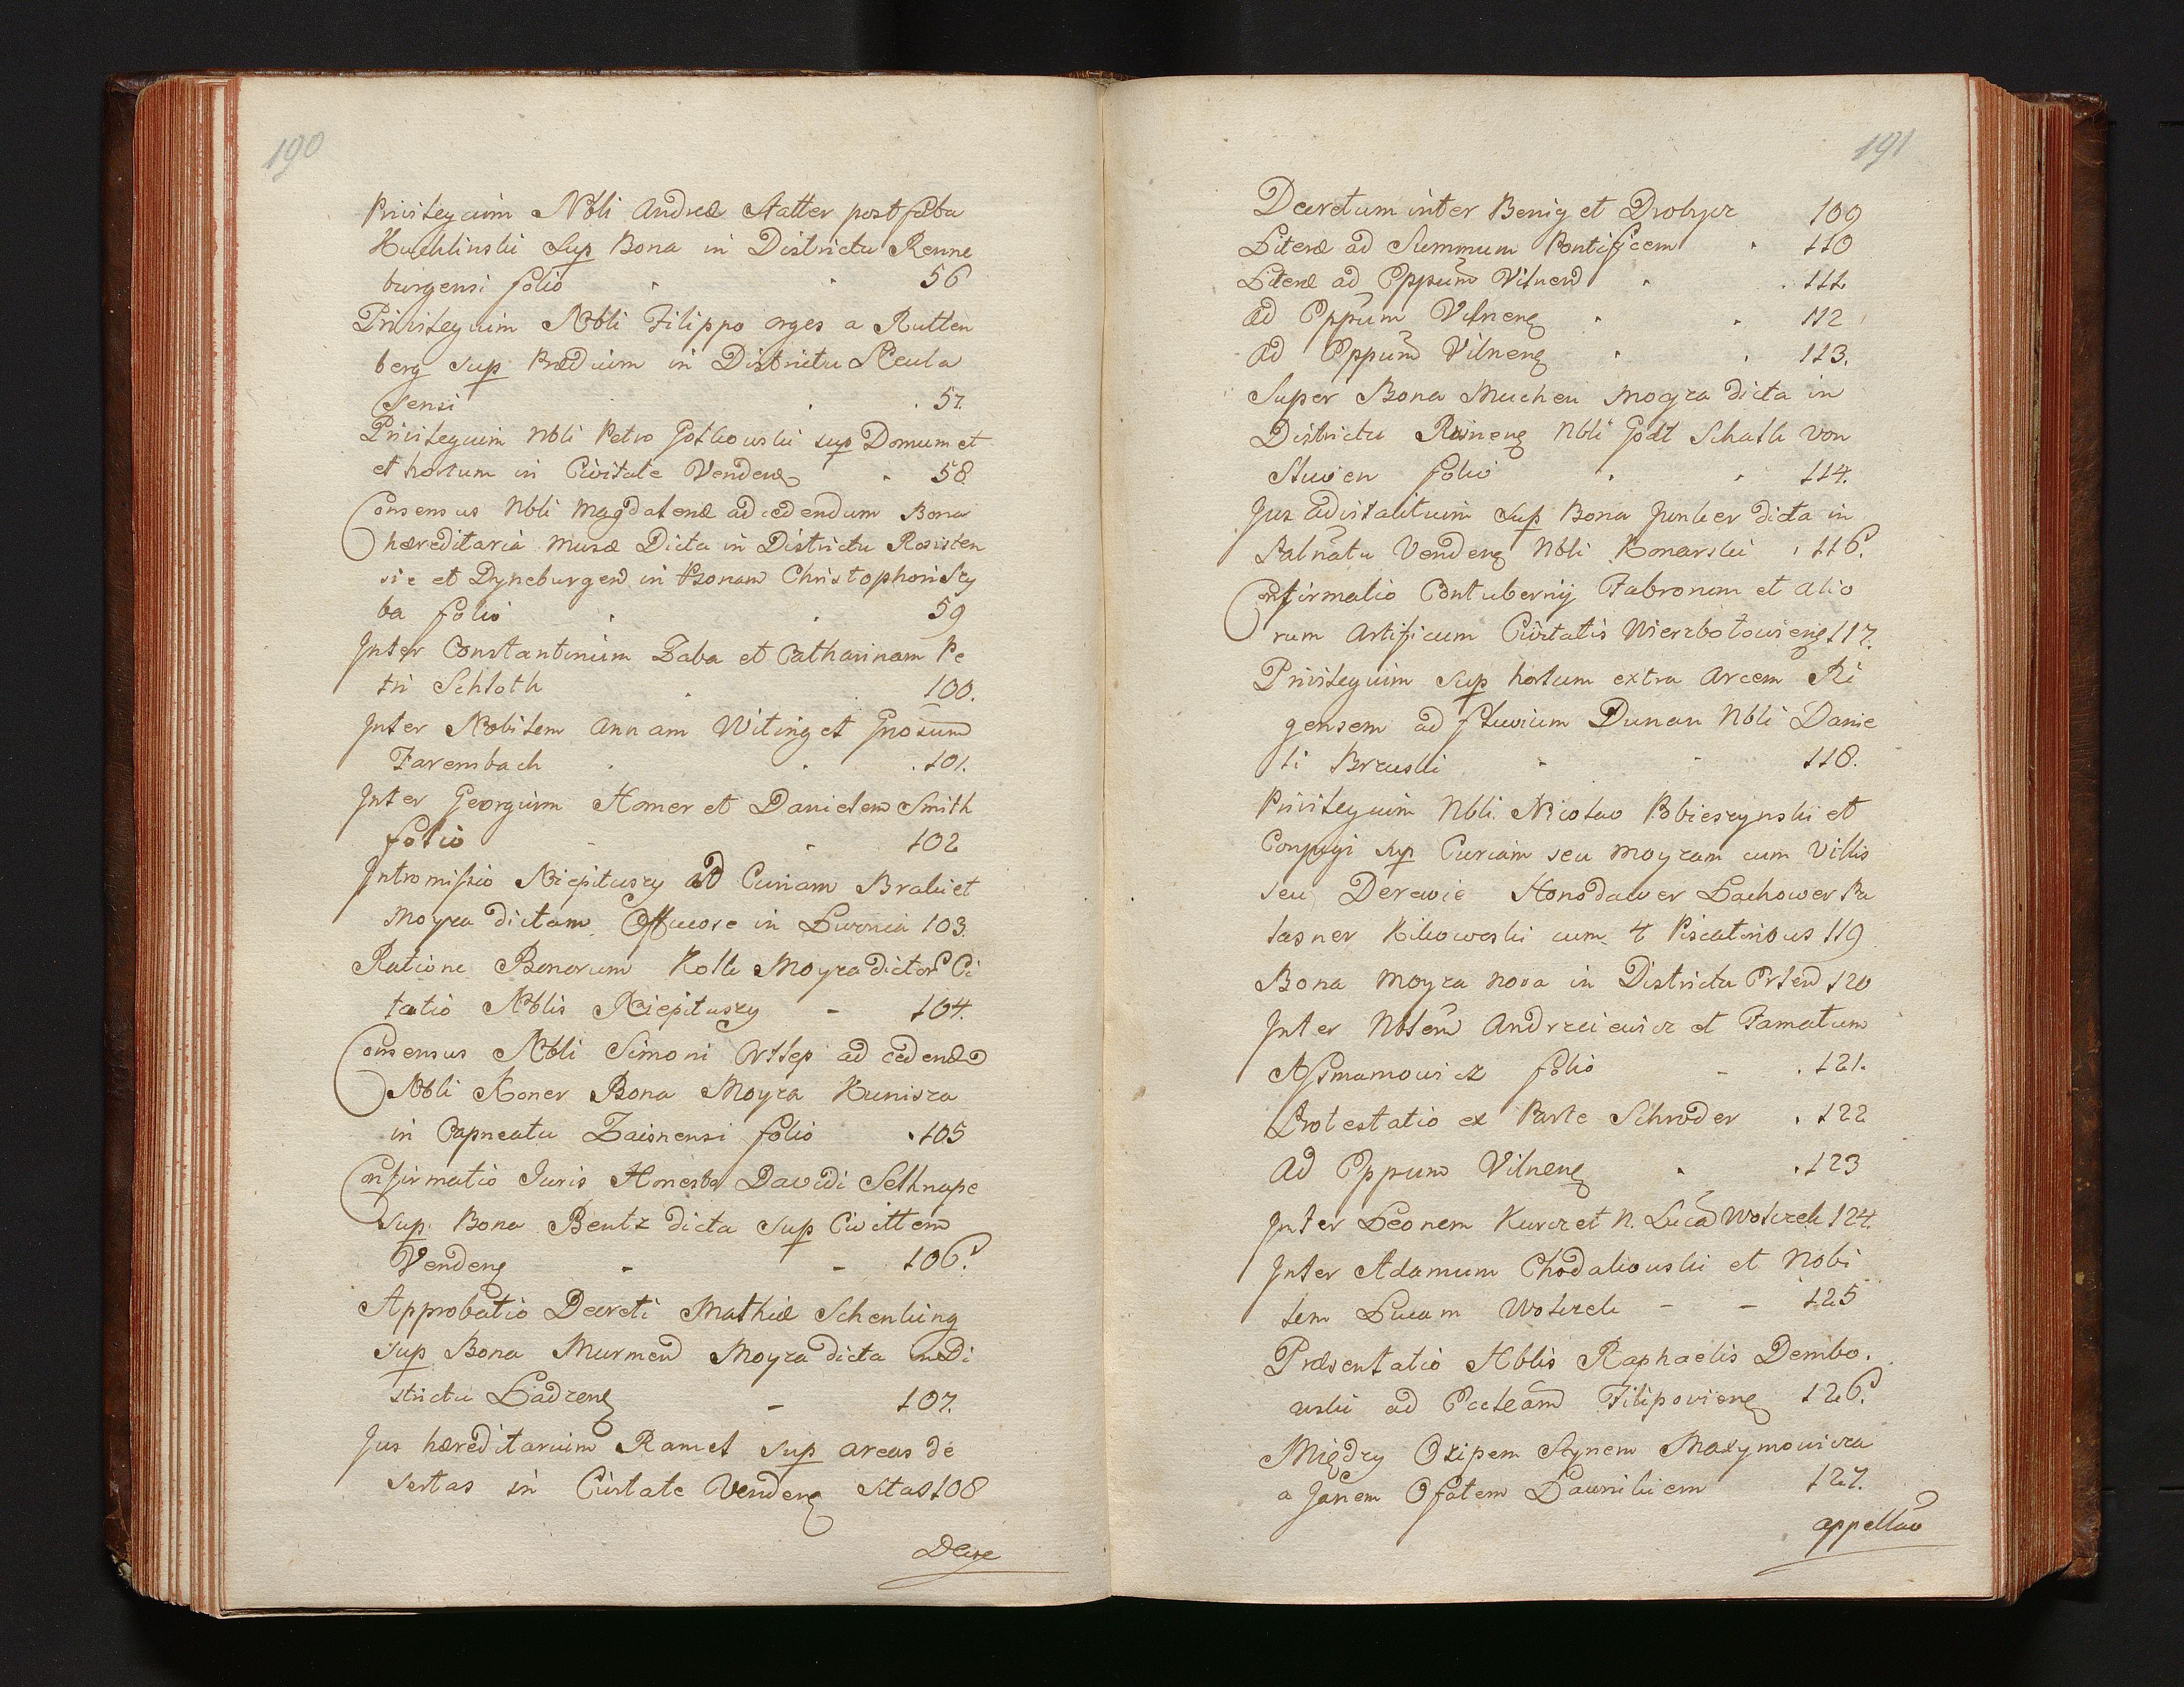 190
Privilegium Nbli Andreæ Statter post fata
Huchlinski Sup Bona in Districtu Renne
burgensi folio 56
Privilegium Nobli Filippo Orges a Rutten
berg sup Prædium in Districtu Secula
sensi 57.
Privilegium Nbli Petro Gotkowski sup Domum et
et hortum in Civitate Venden 58
Consensus Nbli Magdalenæ ad cedendum Bona
hæreditaria Musæ Dicta in Districtu Rosisten
sie et Dyneburgen in Psonam Christophori Szy
ba folio 59
Inter Constantinum Zaba et Catharinam Pe
tri Schloth 100.
Inter Nobilem Annam Witing et Gnosum
Farensbach 101.
Inter Georgium Homer et Danielem Smith
folio 102
Intromissio Niepituszy ad Curiam Braki et
Moyza dictam Offucose in Livonia 103.
Ratione Bonorum Kolk Moyza dictor Ci
tatio Noblis Niepituszy 104.
Consensus Nobli Simoni Orslep ad cedend
Nobli Koner Bona Moyza Kunisza
in Capneatu Zaisnensi folio 105
Confirmatio Iuris Honesto Davidi Selknape
sup Bona Bentz dicta sup Civittem
Venden 106.
Approbatio Decreti Mathiæ Schenking
sup Bona Murmen Moyza dicta in Di
strictu Ladzen 107.
Jus hæreditarium Ramet sup areas de
sertas in Civitate Venden sitas 108
Decre
191
Decretum inter Benig et Drobysz 109
Literæ ad Summum Pontificem 110
Literæ ad Eppum Vilnen 111.
ad Eppum Vilnen 112
ad Eppum Vilnen 113.
Super Bona Muchen moyza dicta in
Districtu Rujnen Nbli Godt Schalk von
Stuven folio 114.
Jus advitalitium sup Bona Junker dicta in
Palnatu Venden Nbli Konarski 116.
Confirmatio Contubernij Fabrorum et alio
rum Artificum Civitatis Wierzbolowien 117.
Privilegium sup hortum extra Arcem Ri
gensem ad fluvium Dunau Nbli Danie
li Brzuski 118.
Privilegium Nbli Nicolao Pobieszynski et
Conjugi sup Curiam seu moyzam cum Villis
seu Derewie Honsdawer Lachower Pa
lasner Kikowski cum 4 Piscatoribus 119
Bona Moyza nova in Districtu Orlen 120
Inter Nblem Andrzeiewicz et Famatum
Assmamowicz folio 121.
Protestatio ex Parte Schroder 122
Ad Eppum Vilnen 123
Inter Leonem Kurcz et N. Lucam Wolczek 124.
Inter Adamum Chodakowski et Nobi
lem Lucam Wolczek 125
Præsentatio Nblis Raphaelis Dembo.
wski ad Eccleam Filipovien 126.
Między Osipem Synem Maxymowicza
a Janem Ofatem Dawnikiem 127.
appellao